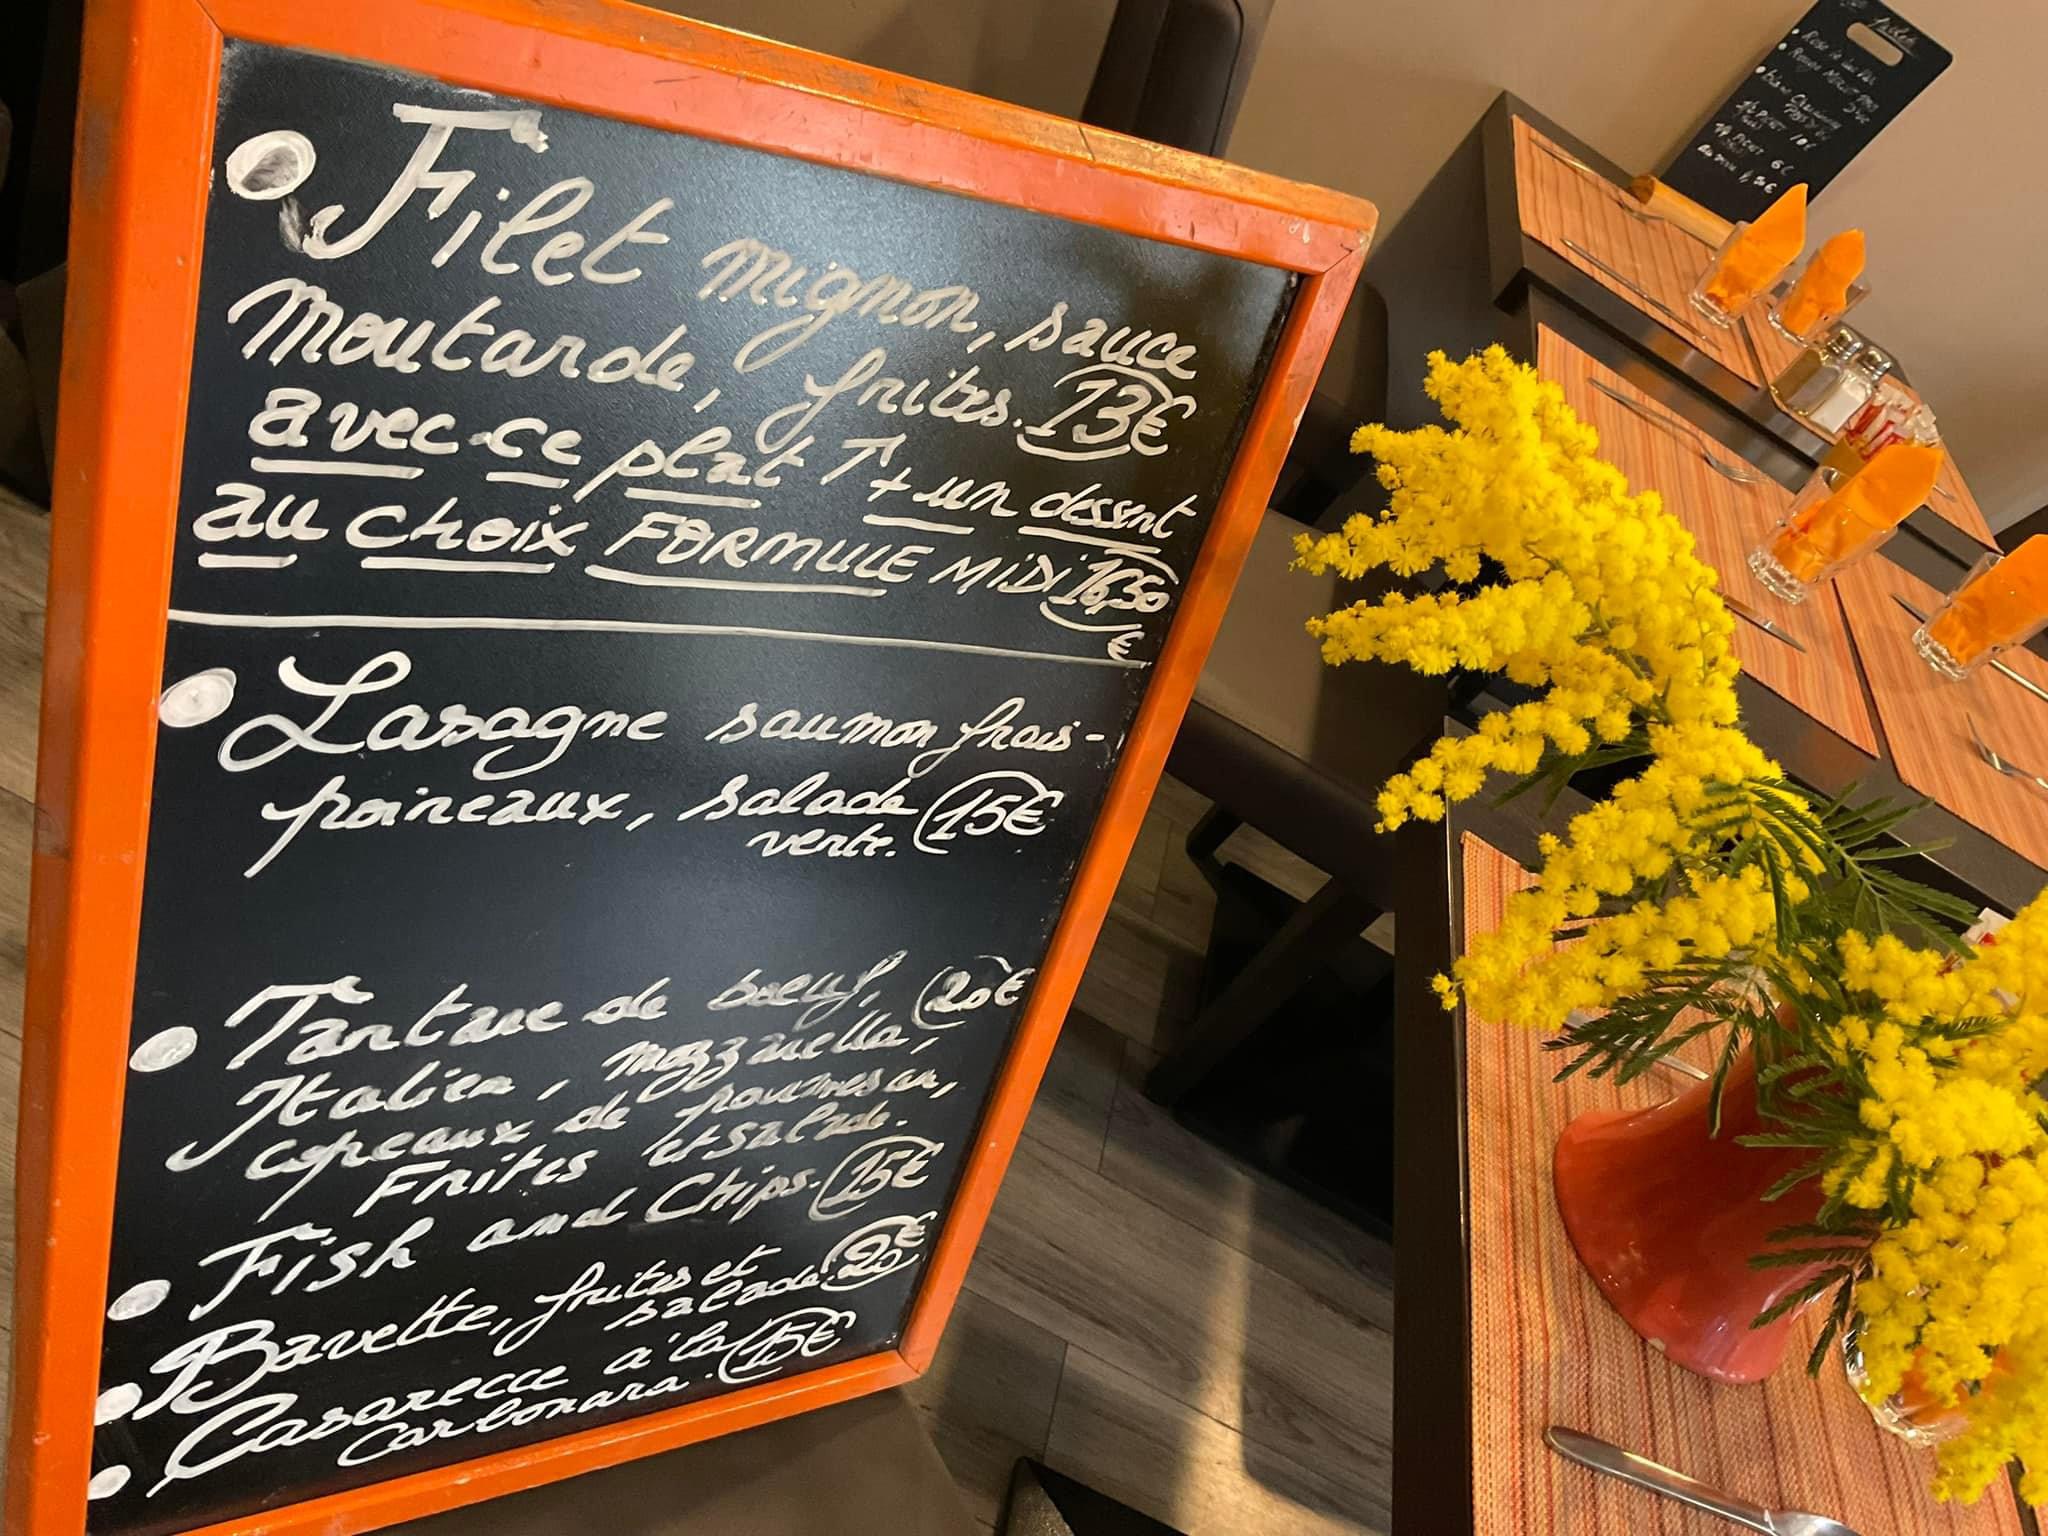 Filet mignon, sauce
moutarde, frites. 13€
avec ce plat ↑ + un dessert
au choix FORMULE MiDi 16,50
€
Lasagne saumon frais-
poireaux, salade 15€
verte.
Tartare de boeuf, 20€
Italien, mozzarella,
copeaux de parmesan,
Frites et salade.
Fish and Chips. 15€
Bavette, frites et 20€
salade.
Casarecce à la 15€
Carbonara.